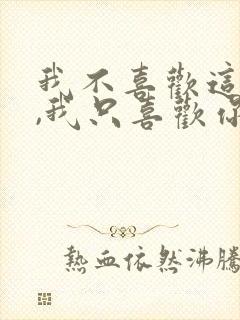 我不喜歡這
,我只喜歡你
熱血依然沸騰